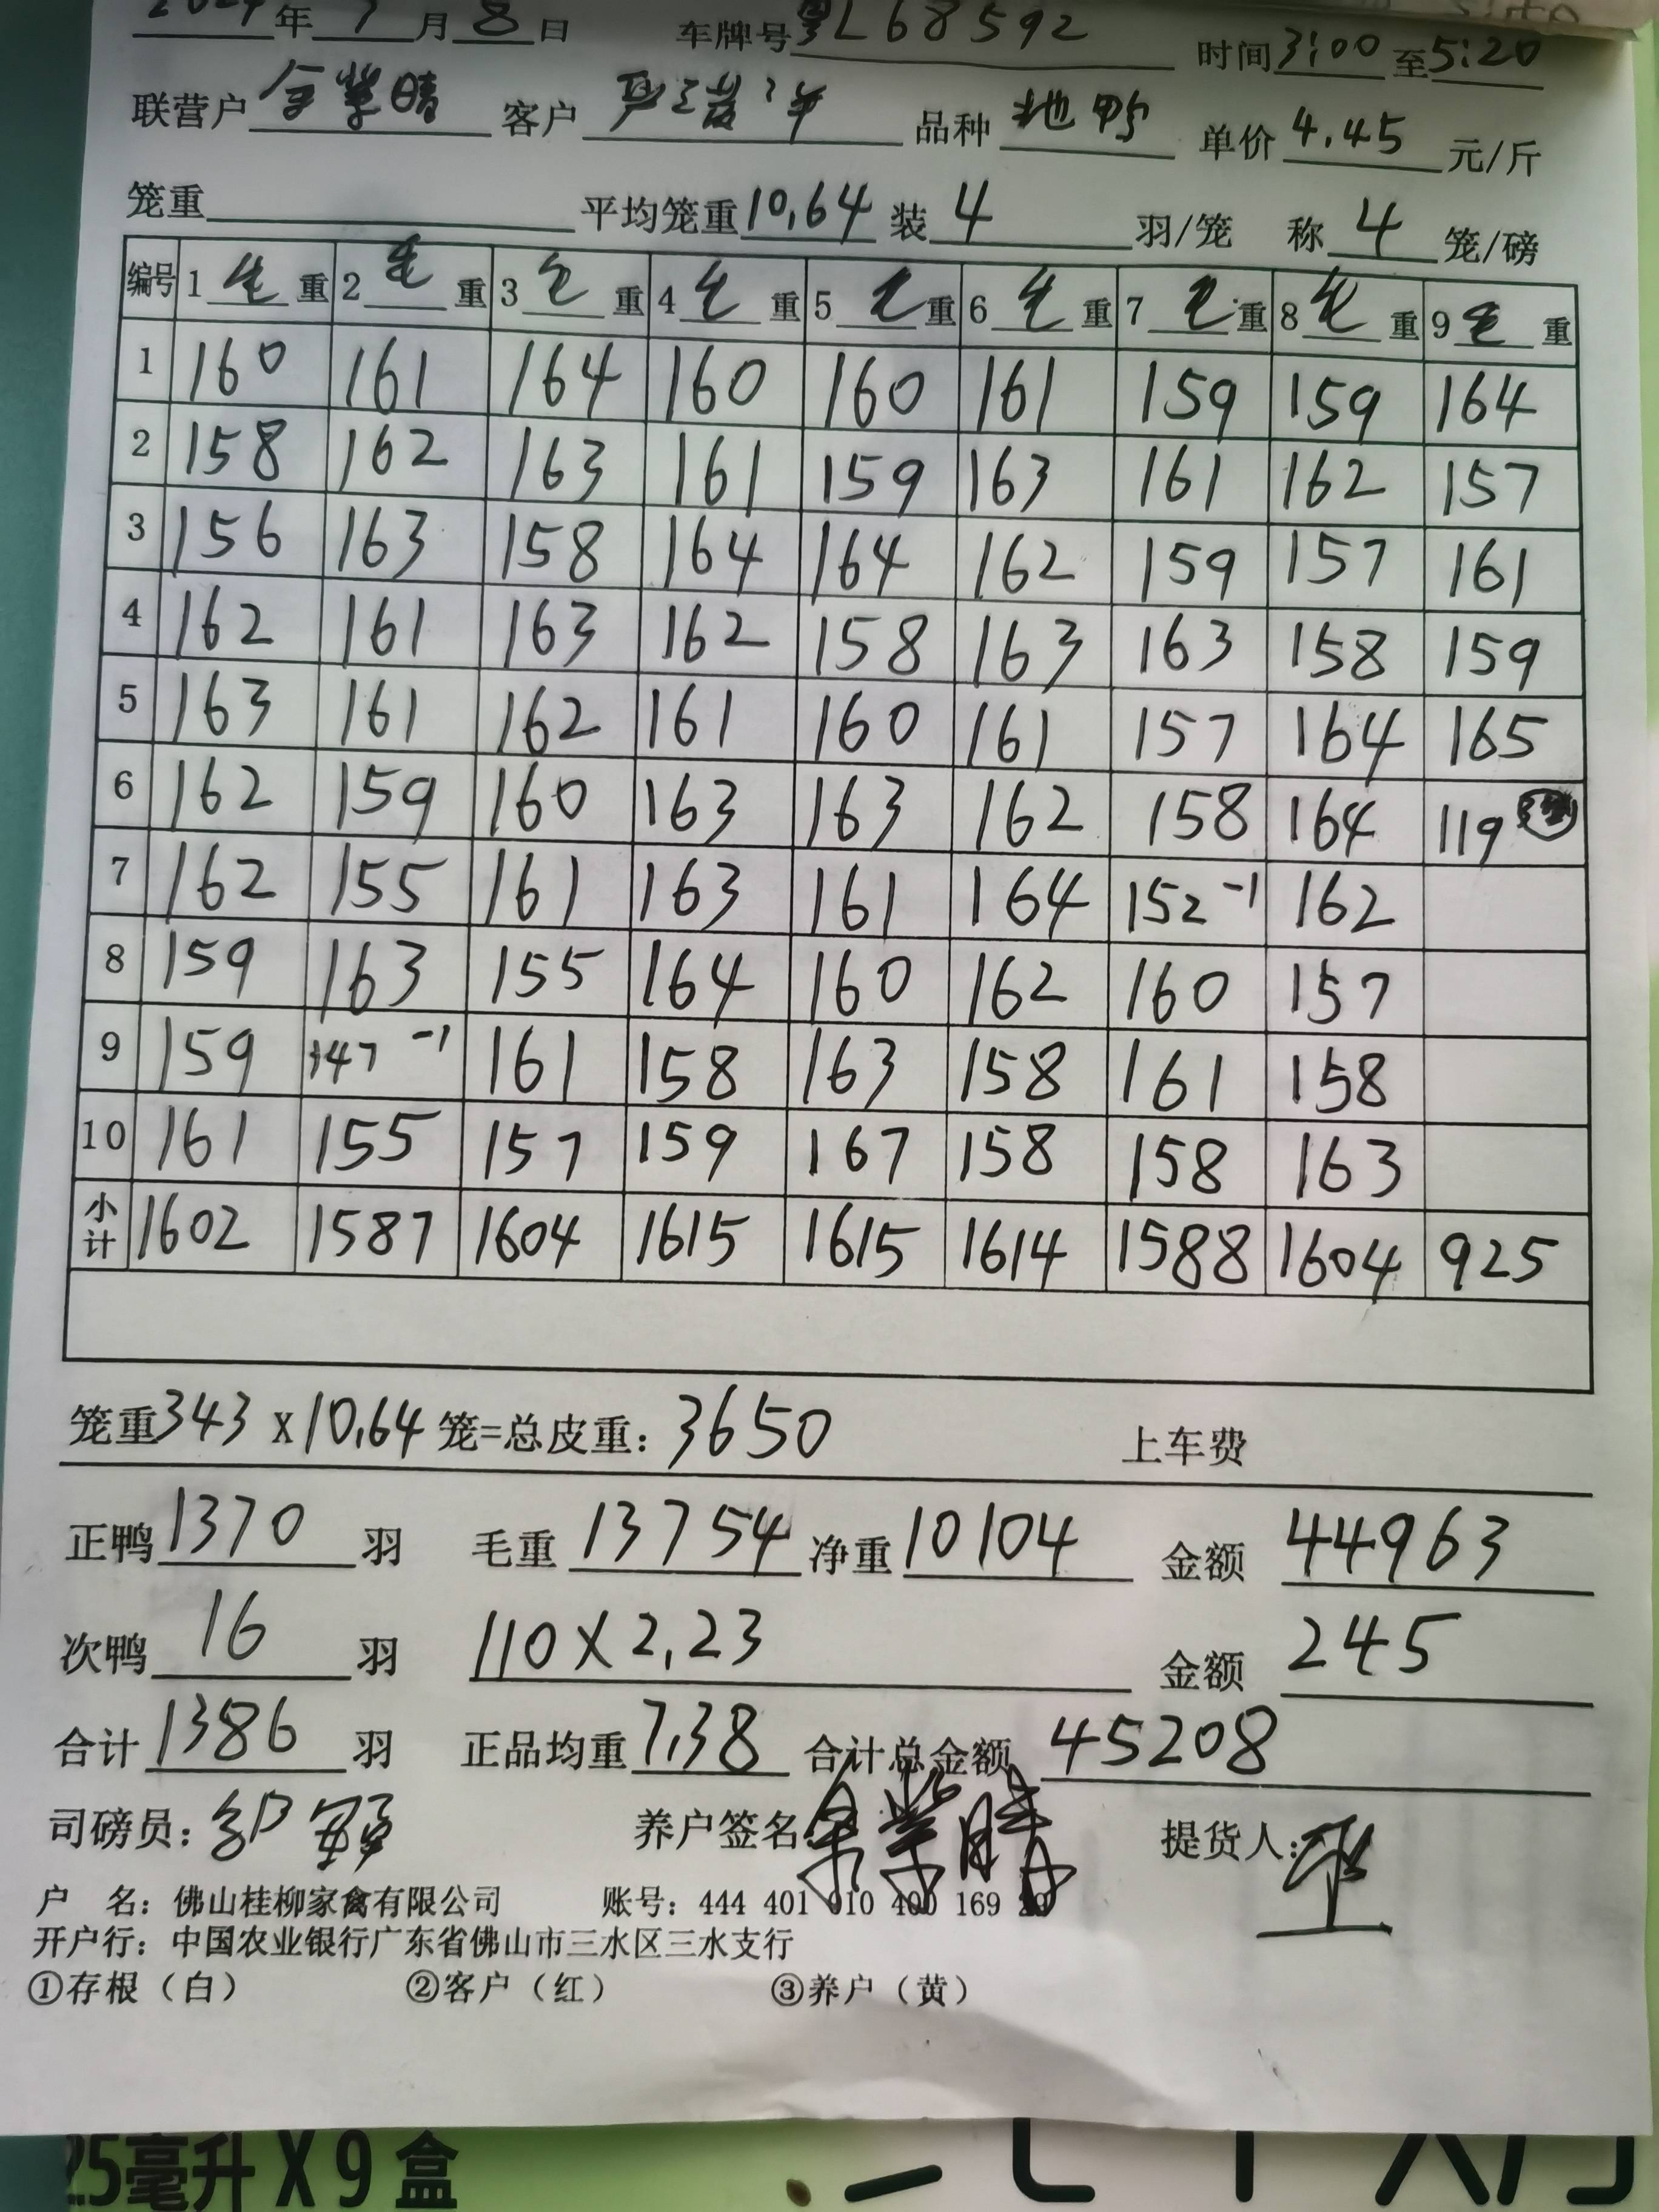 2024年7月8日 车牌号粤L68592 时间3:00至5:20
联营户 客户 品种 地鸭 单价4.45元/斤
笼重 平均笼重10.64装4羽/笼 称4笼/磅
编号 1毛重 2毛重 3毛重 4毛重 5毛重 6毛重 7毛重 8毛重 9毛重
1 160 161 164 160 160 161 159 159 164
2 158 162 163 161 159 163 161 162 157
3 156 163 158 164 164 162 159 157 161
4 162 161 163 162 158 163 163 158 159
5 163 161 162 161 160 161 157 164 165
6 162 159 160 163 163 162 158 164 119
7 162 155 161 163 161 164 152-1 162
8 159 163 155 164 160 162 160 157
9 159 147-1 161 158 163 158 161 158
10 161 155 157 159 167 158 158 163
小计 1602 1587 1604 1615 1615 1614 1588 1604 925
笼重343X10.64笼=总皮重：3650 上车费
正鸭1370羽 毛重13754净重10104 金额44963
次鸭16羽 110X2.23 金额245
合计1386羽 正品均重7.38合计总金额45208
司磅员： 养户签名： 提货人：
户 名：佛山桂柳家禽有限公司 账号：444 401 010 400 169 29
开户行：中国农业银行广东省佛山市三水区三水支行
①存根（白） ②客户（红） ③养户（黄）
25毫升X9盒